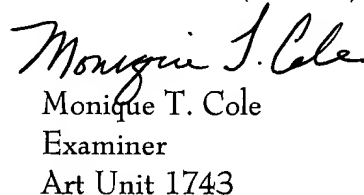 Monique T. Cole
Monique T. Cole
Examiner
Art Unit 1743